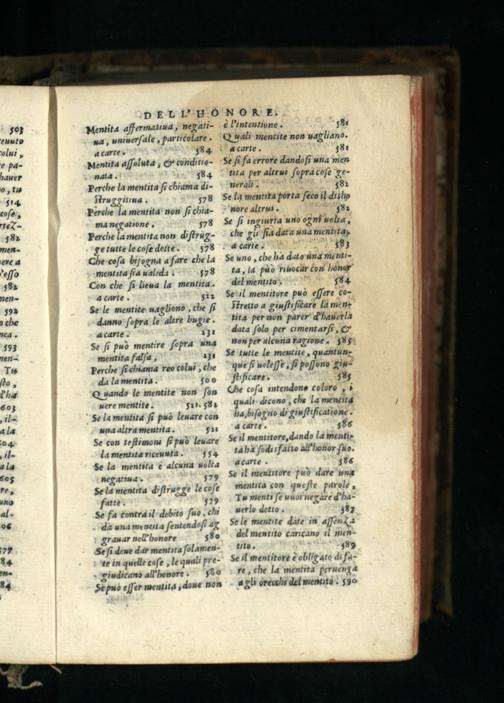 503
514
582
582
592
593
603
604
603
605
606
577
584
584
DELL'HONORE.
Mentita affermatiua, negati-
ua, uniuersale, particolare.
a carte. 584
Mentita assoluta, & conditio-
nata. 584
Perche la mentita si chiama di-
struggitiua. 578
Perche la mentita non si chia-
ma negatione. 578
Perche la mentita non distrug-
ge tutte le cose dette. 578
Che cosa bisogna a fare che la
mentita sia ualida. 578
Con che si lieua la mentita.
a carte. 522
Se le mentite uagliono, che si
danno sopra le altre bugie.
a carte. 231
Se si può mentire sopra una
mentita falsa, 231
Perche si chiama reo colui, che
da la mentita. 500
Quando le mentite non son
uere mentite. 521.582
Se la mentita si può leuare con
una altra mentita. 521
Se con testimoni si può leuare
la mentita riceuuta. 554
Se la mentita è alcuna uolta
negatiua. 579
Se la mentita distrugge le cose
fatte. 579
Se fa contra il debito suo, chi
da una mentita sentendosi ag
grauar nell'honore 580
Se si deue dar mentita solamen-
te in quelle cose, le quali pre-
giudicano all'honore. 580
Se può esser mentita, doue non
è l'intentione. 581
Quali mentite non uagliano.
a carte. 581
Se si fa errore dandosi una men
tita per altrui sopra cose ge-
nerali. 582
Se la mentita porta seco il disho
nore altrui. 582
Se si ingiuria uno ogni uolta,
che gli sia data una mentita,
a carte. 583
Se uno, che hà dato una menti-
ta, la può riuocar con honor
del mentito. 584
Se il mentitore può essere co-
stretto a giustificare la men-
tita per non parer d'hauerla
data solo per cimentarsi, &
non per alcuna ragione. 585
Se tutte le mentite, quantun-
que si uolesse, si possono giu-
stificare. 585
Che cosa intendono coloro, i
quali dicono, che la mentita
ha bisogno di giustificatione.
a carte. 586
Se il mentitore, dando la menti-
ta ha sodisfatto all'honor suo.
a carte. 586
Se il mentitore può dare una
mentita con queste parole,
Tu menti se uuoi negare d'ha-
uerlo detto. 587
Se le mentite date in assenza
del mentito caricano il men-
tito. 589
Se il mentitore è obligato di fa-
re, che la mentita peruenga
a gli orecchi del mentito. 590